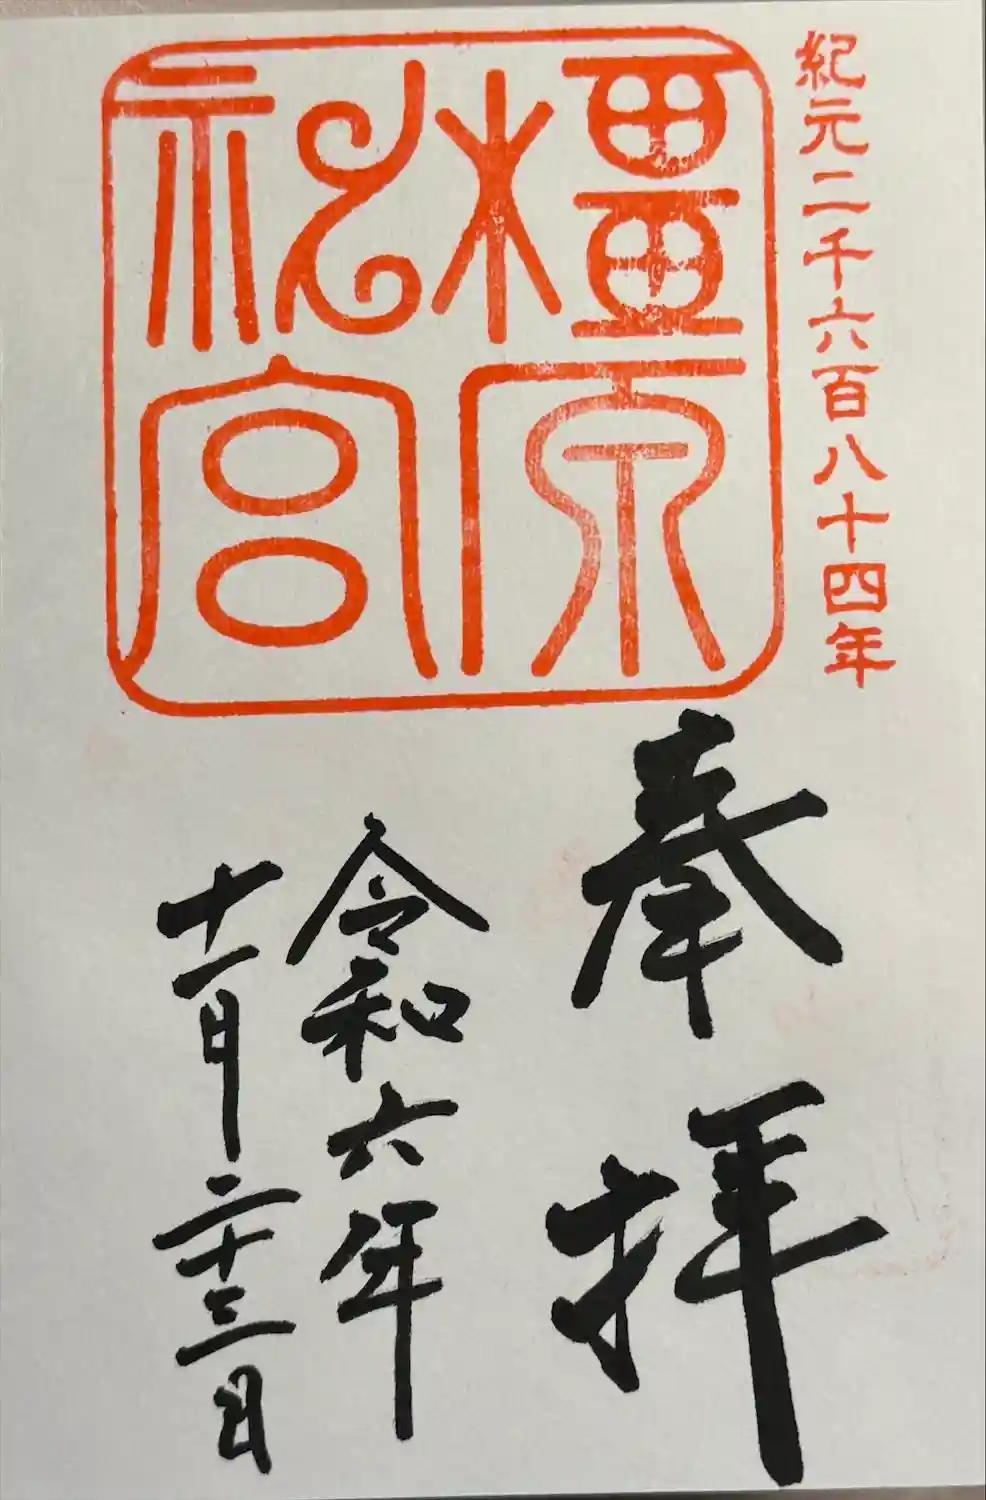 紀元二千六百八十四年
橿原
神宮
奉拝
令和六年
十一月二十三日